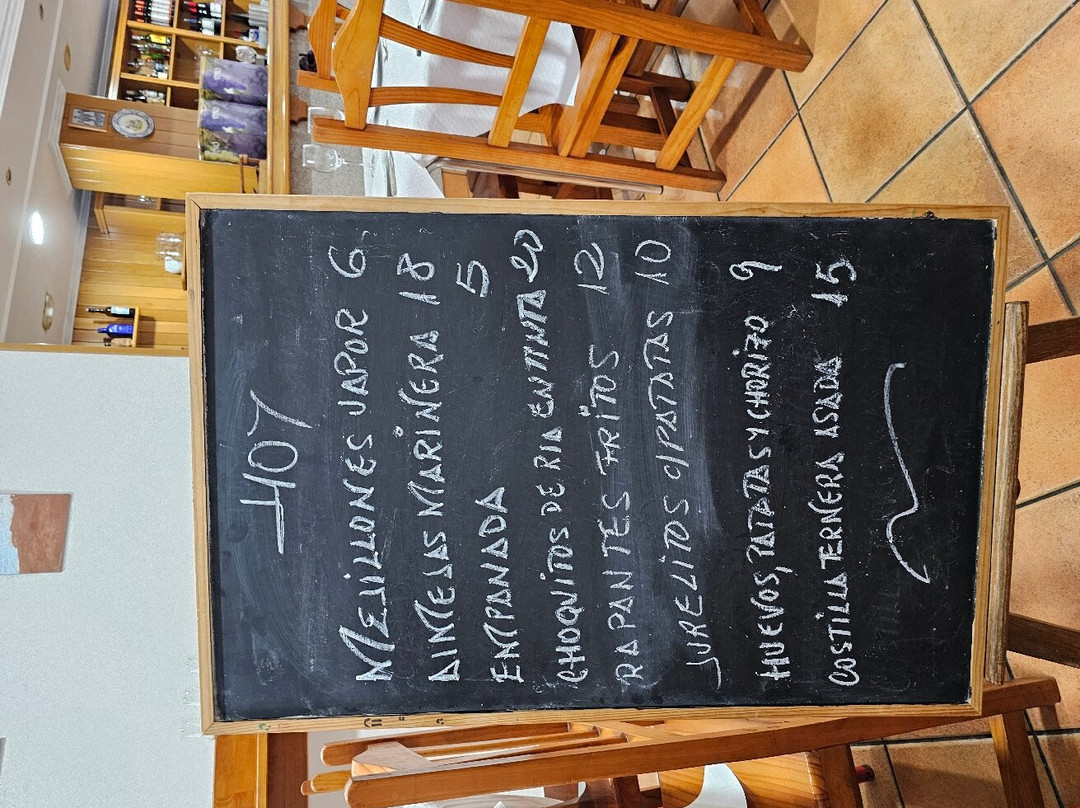 HOY
MEJILLONES VAPOR 6
ALMEJAS MARINERA 18
EMPANADA 5
CHOQUITOS DE RIA EN TINTA 20
RAPANTES FRITOS 12
JURELITOS C/PATATAS 10
HUEVOS, PATATAS Y CHORIZO 9
COSTILLA TERNERA ASADA 15